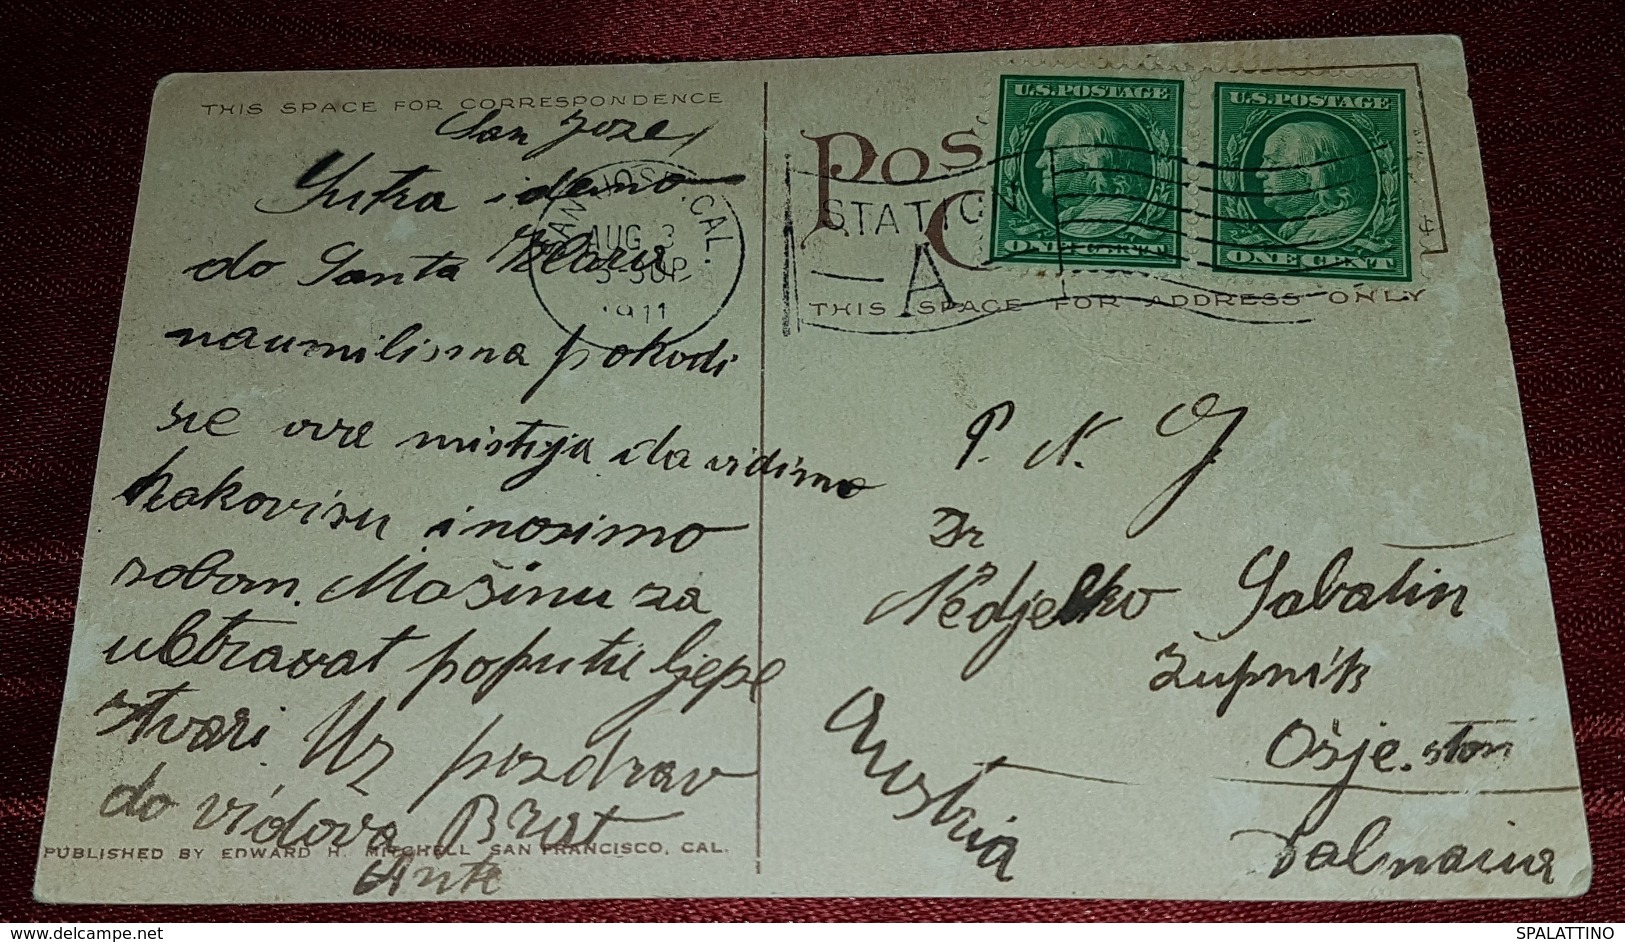 THIS SPACE FOR CORRESPONDENCE
San Joze,
Jutra idemo
do Santa Klaru
naumili sma pohodi
sve ove mistija da vidimo
kakovi su i nosimo
sobom. Mašinu za
ubtravat poputu ljepe
stvari. Uz pozdrav
do viđova Brat
Ante
PUBLISHED BY EDWARD H. MITCHELL, SAN FRANCISCO, CAL.
SAN JOSE, CAL.
AUG 3
1911
STATION
A
U.S.POSTAGE
ONE CENT
U.S.POSTAGE
ONE CENT
POST
THIS SPACE FOR ADDRESS ONLY
P. N. G.
Dr
Nedjelko Sabatin
Župnik
Osje. stari
Austria
Dalmacija
www.delcampe.net
SPALATTINO